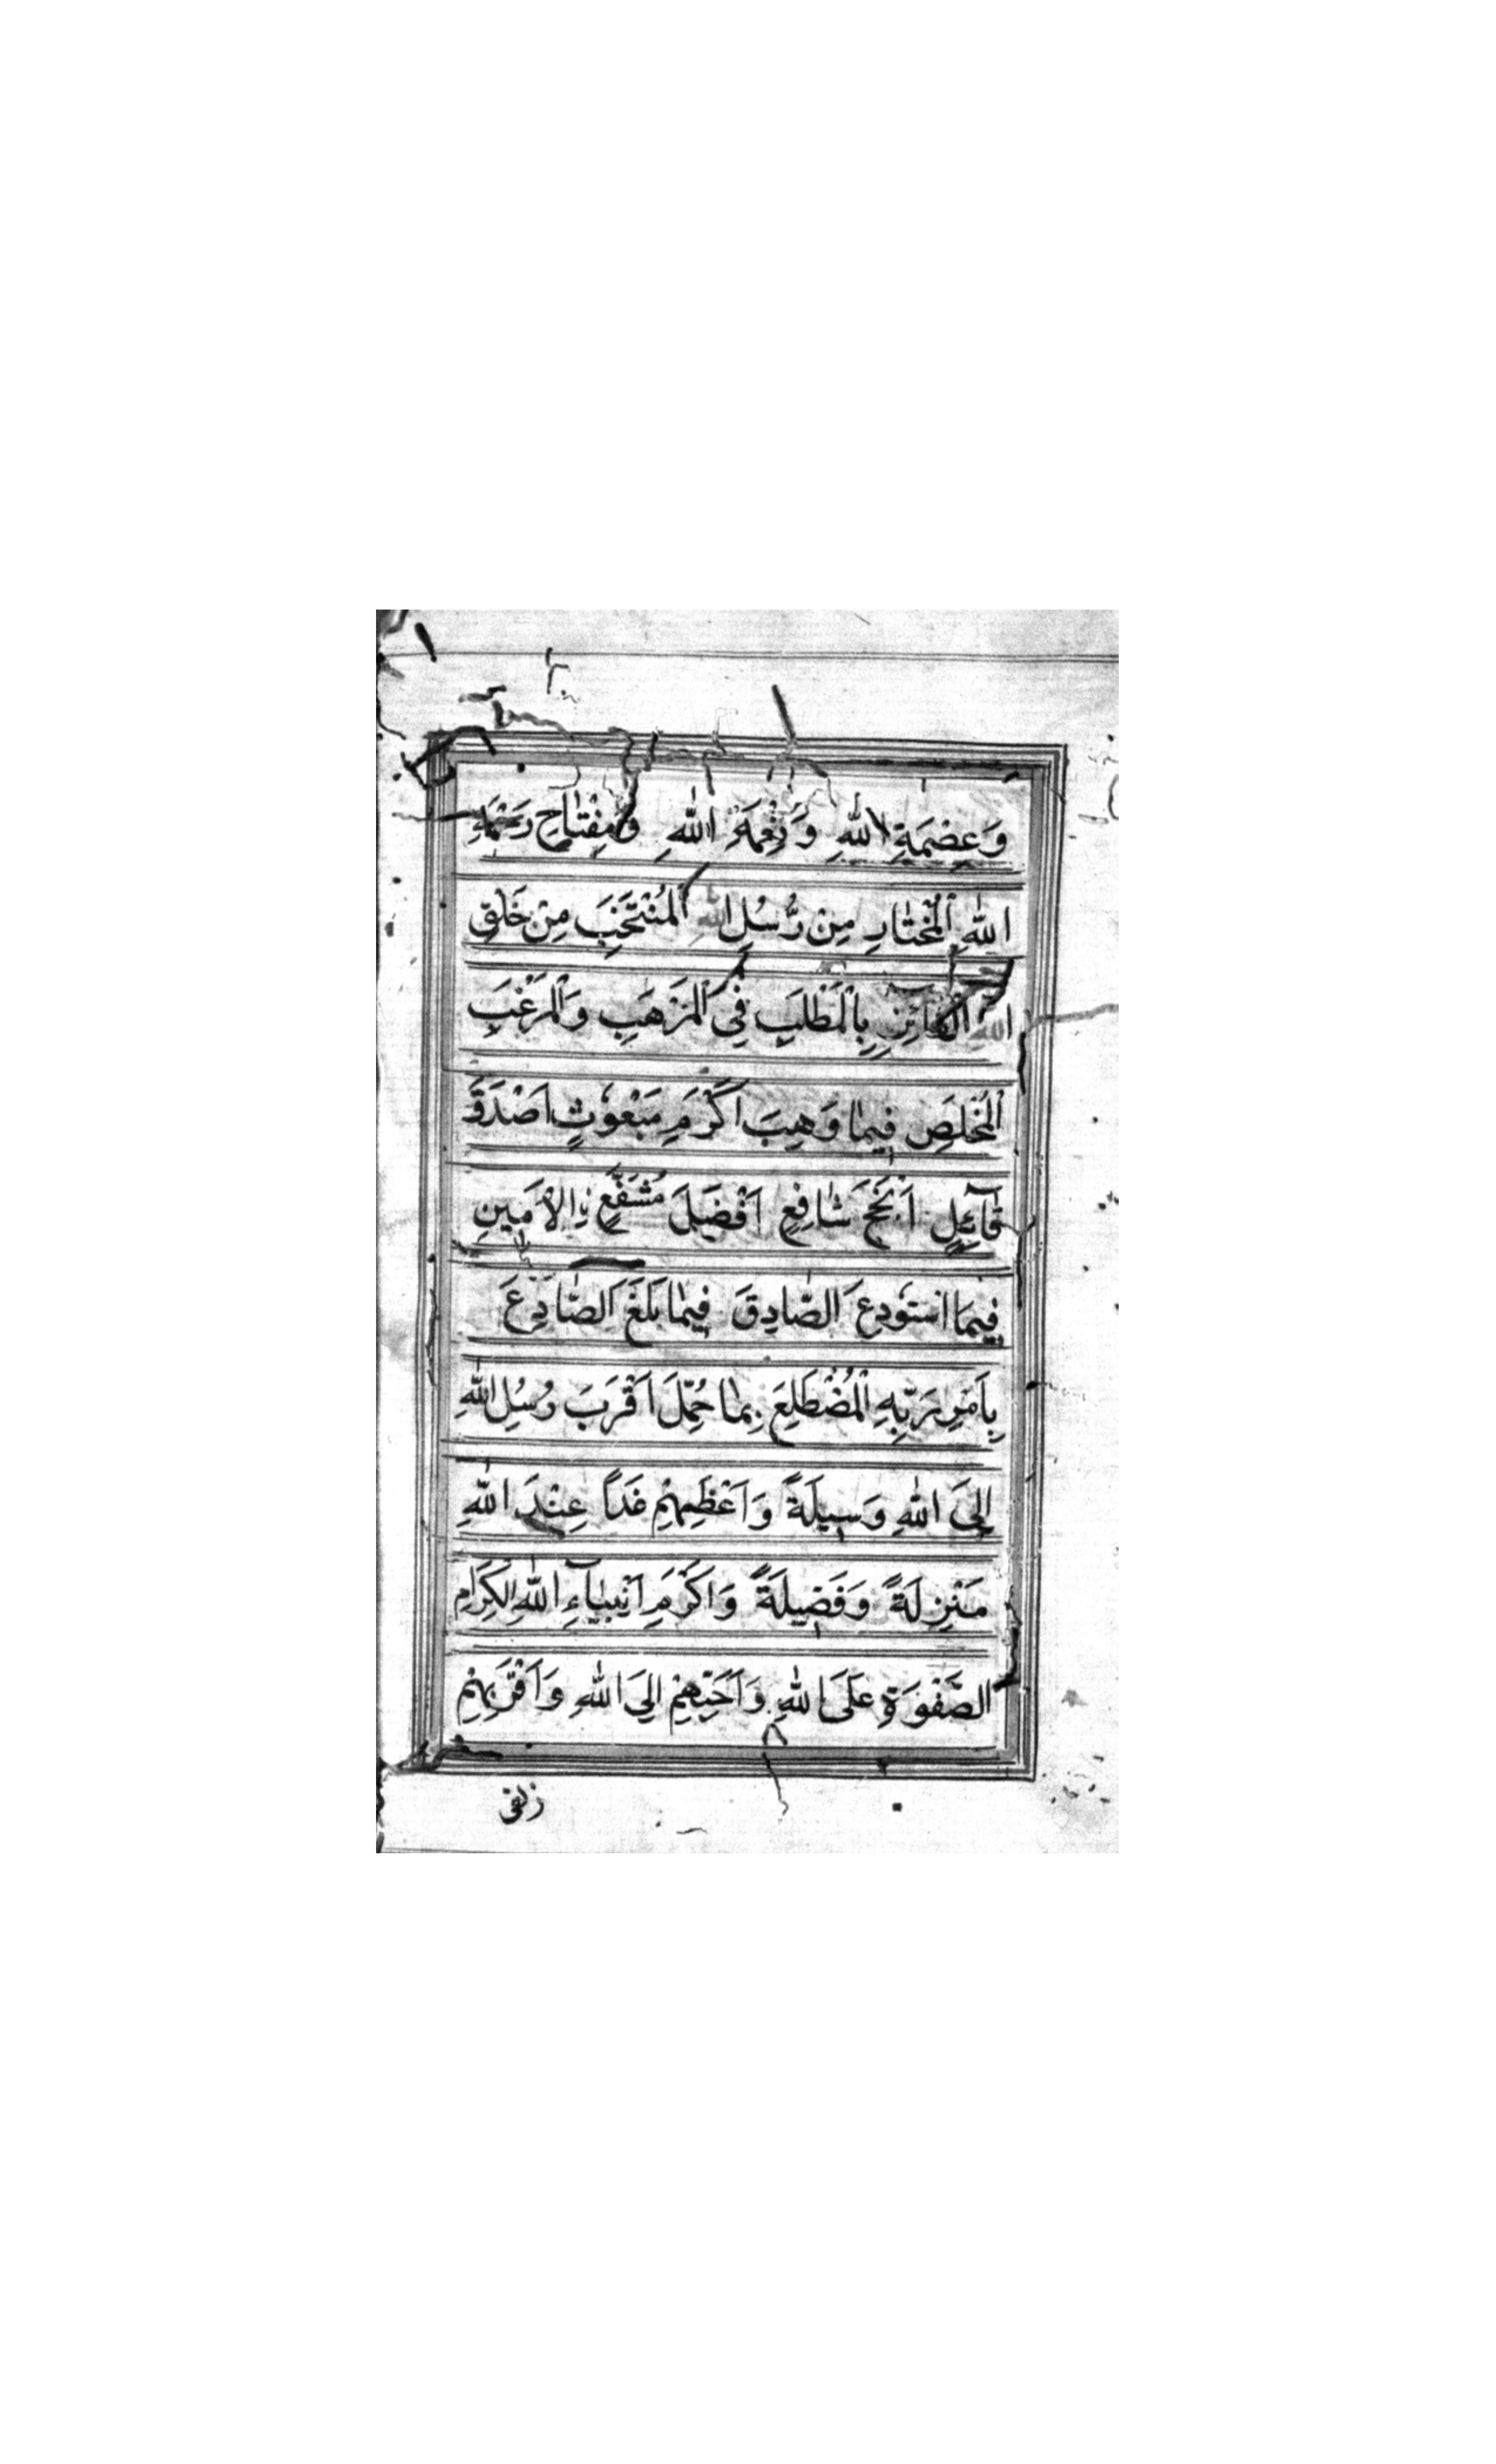 وَعِصْمَةِ اللهِ وَنِعْمَةِ اللهِ وَمِفْتَاحِ رَحْمَةِ
اللهِ الْمُخْتَارِ مِنْ رُّسُلِ اللهِ الْمُنْتَخَبِ مِنْ خَلْقِ
اللهِ الْفَآئِزِ بِالْمَطْلَبِ فِي الْمَرْهَبِ وَالْمَرْغَبِ
الْمُخْلَصِ فِيمَا وَهِبَ اَكْرَمِ مَبْعُوْثٍ اَصْدَقَ
قَآئِلٍ اَنْجَحَ شَافِعٍ اَفْضَلَ مُشَفَّعٍ نِ الْاَمِينِ
فِيمَا اسْتَوْدِعَ الصَّادِقَ فِيمَا بَلَغَ الصَّادِعَ
بِاَمْرِ رَبِّهِ الْمُضْطَلِعَ بِمَا حُمِّلَ اَقْرَبَ رُسُلِ اللهِ
اِلَى اللهِ وَسِيلَةً وَاَعْظَمِهِمْ غَدًا عِنْدَ اللهِ
مَنْزِلَةً وَفَضِيلَةً وَاَكْرَمِ اَنْبِيَآءِ اللهِ الْكِرَامِ
الصَّفْوَةِ عَلَى اللهِ وَاَحَبِّهِمْ اِلَى اللهِ وَاَقْرَبِهِمْ
زلفى